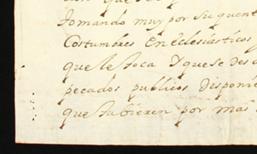 tomando muy por su quent
Costumbres Ecclesiásticos
que le toca Y que se des
pecados publicos Disponie
que tubieren por mas